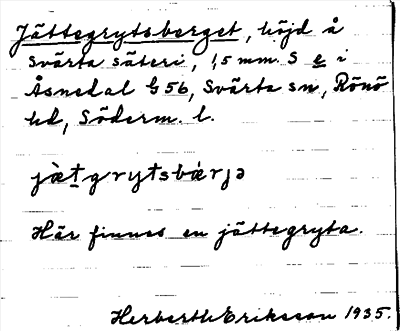 Jättegrytsberget, höjd å
Svärta säteri, 1,5 mm. S e i
Åsnedal G 56, Svärta sn, Rönö
hd, Söderm. l.
jàt̠grytsbǽrjə
Här finnes en jättegryta.
Herberth Eriksson 1935.